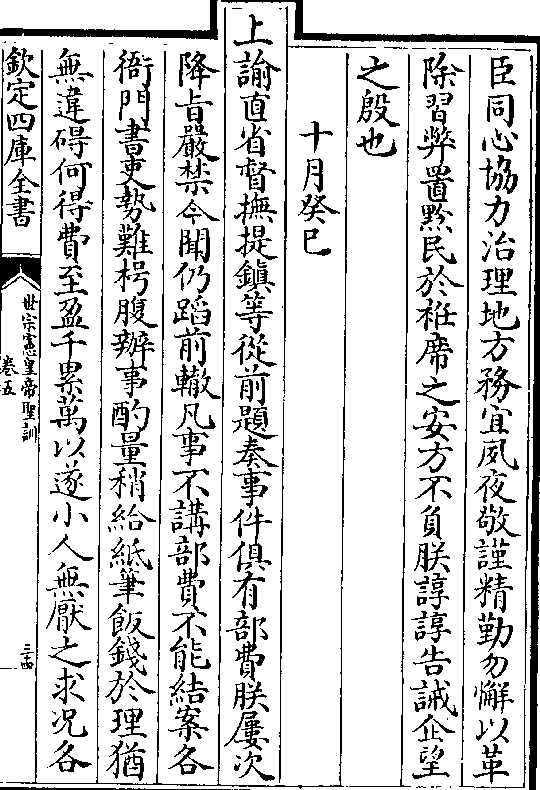 臣同心協力治理地方務宜夙夜敬謹精勤勿懈以革
除習弊置黔民於袵席之安方不負朕諄諄告誡企望
之殷也
十月癸巳
上諭直省督撫提鎮等從前題奏事件俱有部費朕屢次
降旨嚴禁今聞仍蹈前轍凡事不講部費不能結案各
衙門書吏勢難枵腹辦事酌量稍給紙筆飯錢於理猶
無違碍何得費至盈千累萬以遂小人無厭之求况各
欽定四庫全書
世宗憲皇帝聖訓
卷五
三十四